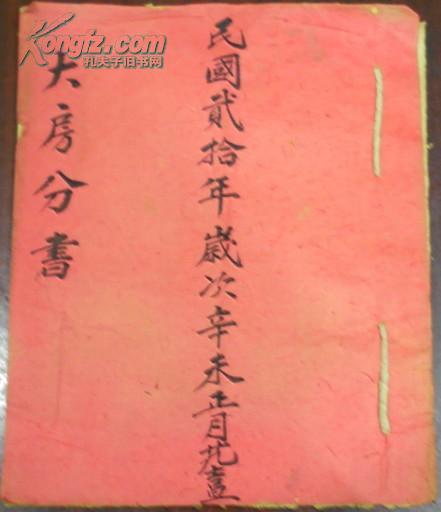 民國貳拾年歲次辛未正月
大房分書
Kongfz.com
孔夫子旧书网